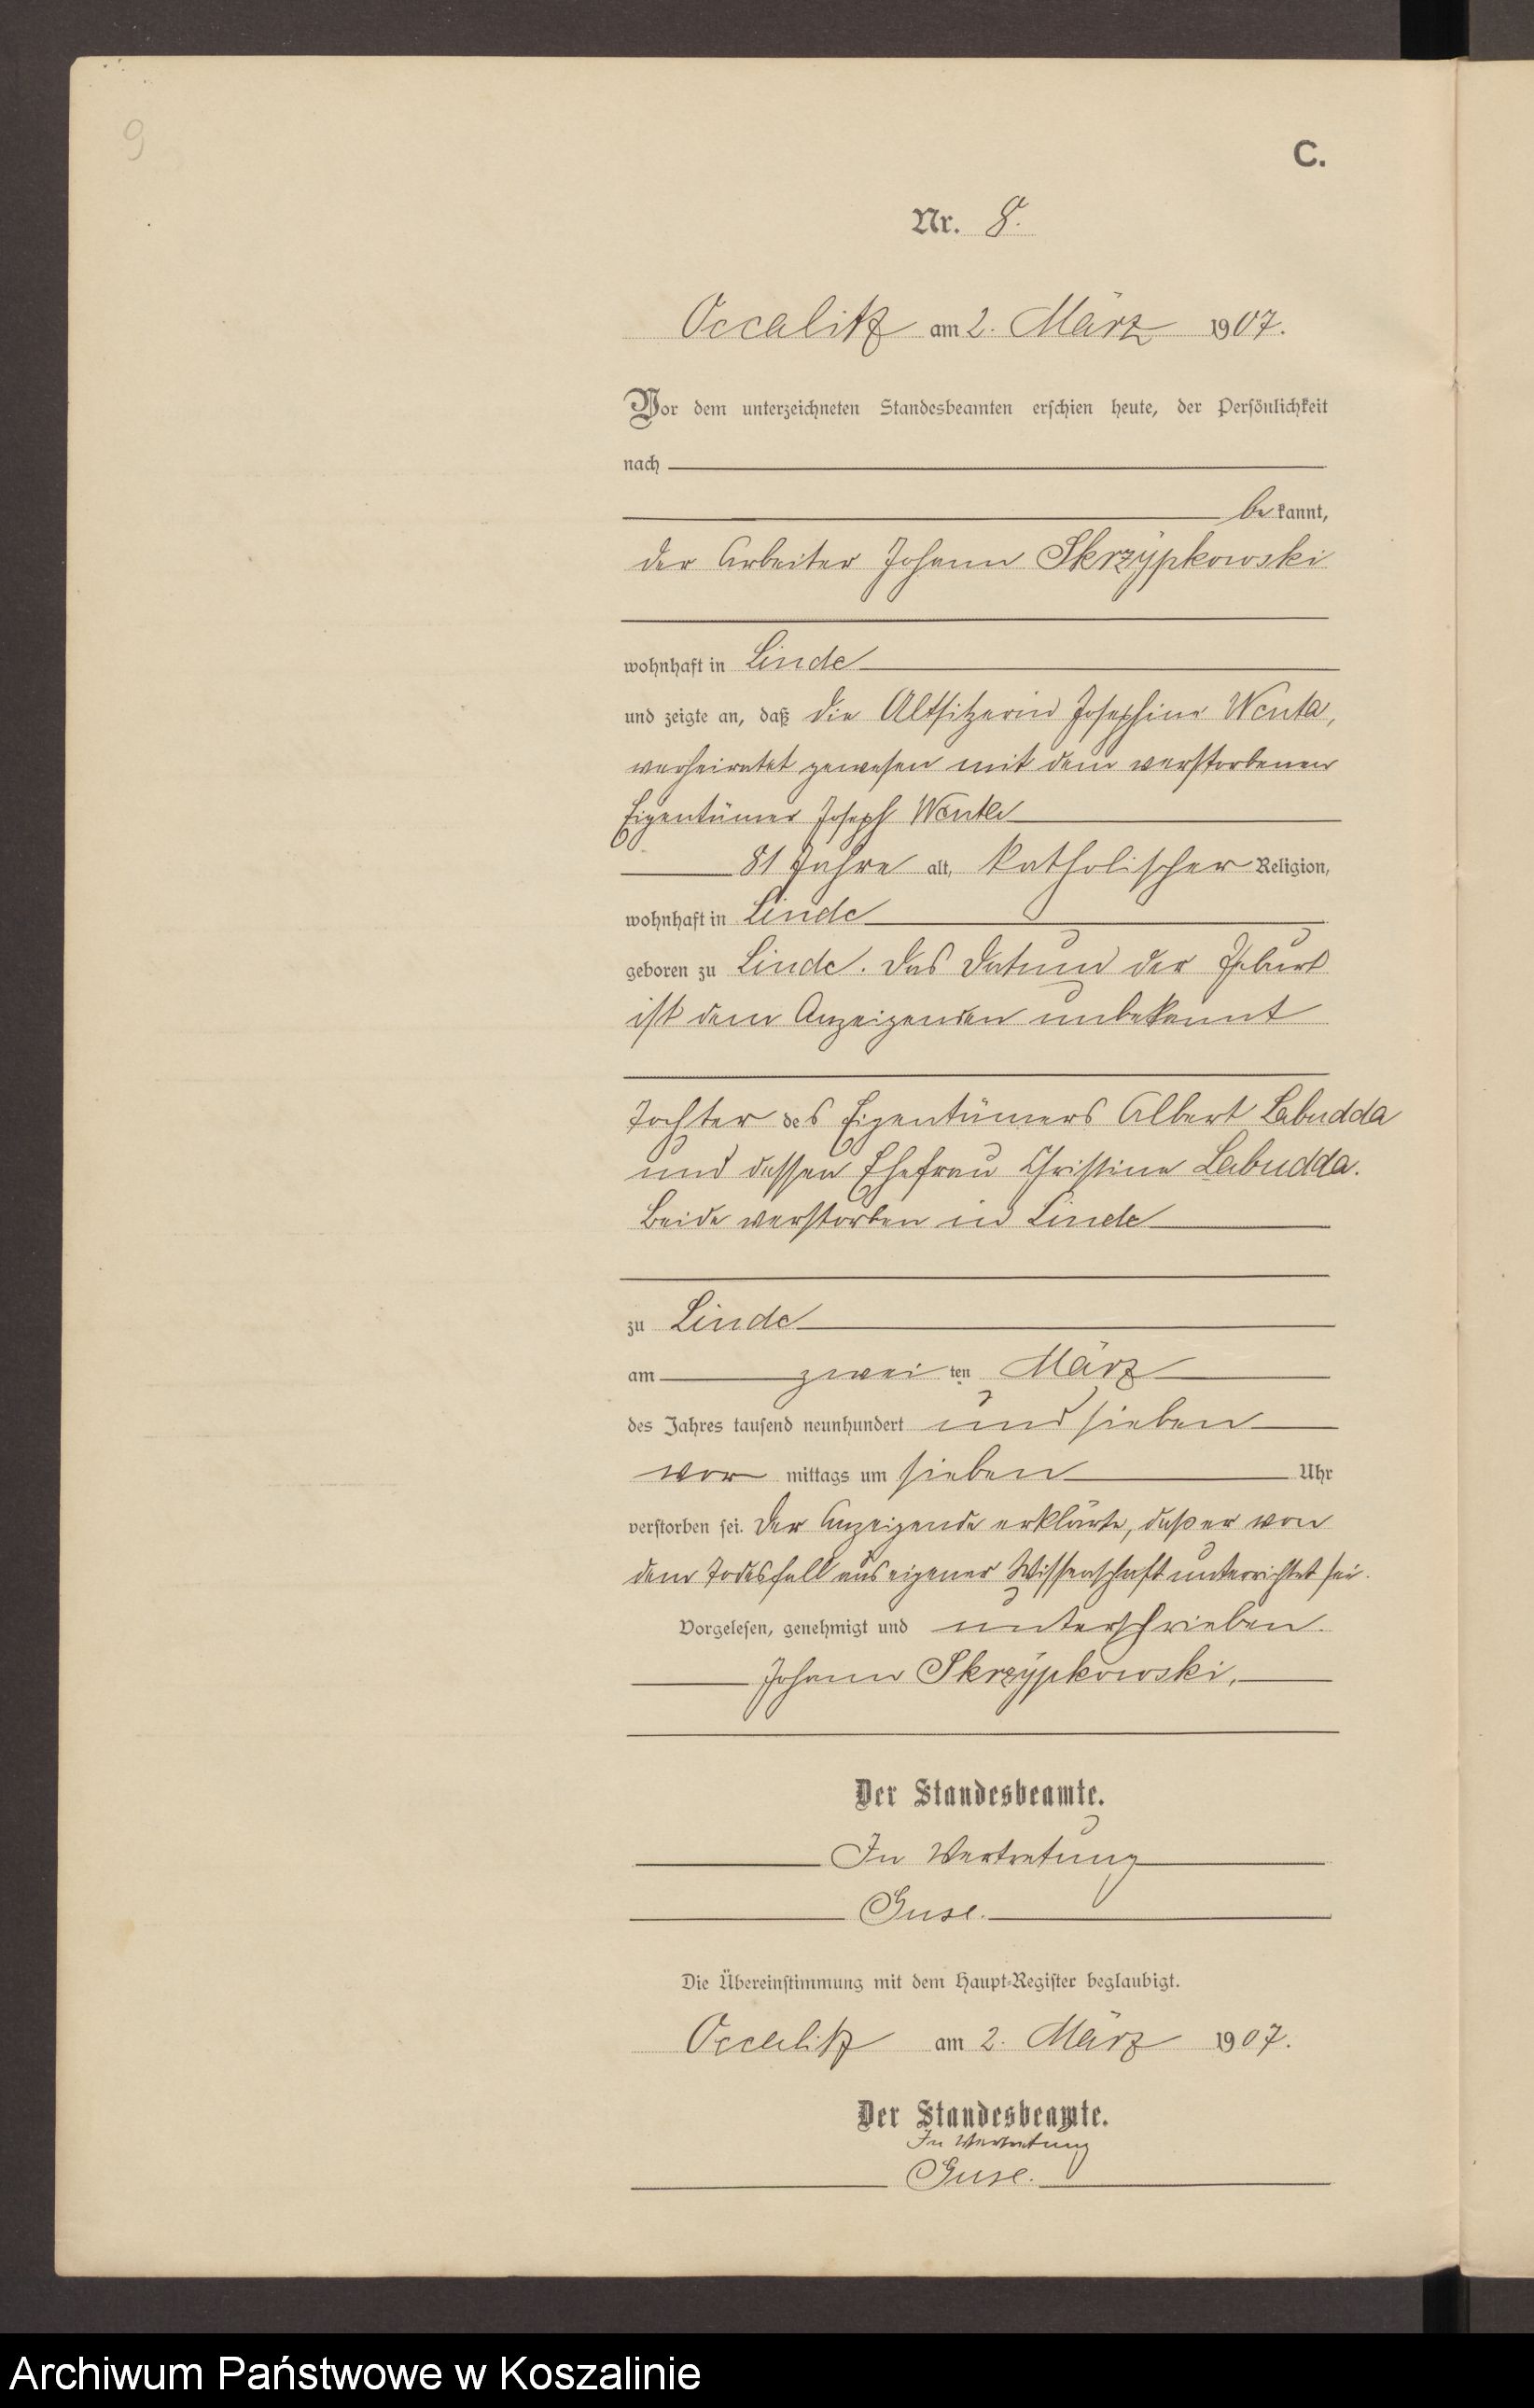 9
C.
Nr. 8.
Occalitz am 2. März 1907.
Vor dem unterzeichneten Standesbeamten erschien heute, der Persönlichkeit
nach
be kannt,
der Arbeiter Johann Skrzÿpkowski
wohnhaft in Linde
und zeigte an, daß die Altsitzerin Josephine Wenta,
verheiratet gewesen mit dem verstorbenen
Eigentümer Joseph Wenta
81 Jahre alt, katholischer Religion,
wohnhaft in Linde
geboren zu Linde. Das Datum der Geburt
ist dem Anzeigenden unbekannt
Tochter des Eigentümers Albert Labudda
und dessen Ehefrau Christine Labudda.
Beide verstorben in Linde
zu Linde
am zwei ten März
des Jahres tausend neunhundert und sieben
vor mittags um sieben Uhr
verstorben sei. Der Anzeigende erklärte, daß er von
dem Todesfall aus eigener Wissenschaft unterrichtet sei.
Vorgelesen, genehmigt und unterschrieben.
Johann Skrzÿpkowski.
Der Standesbeamte.
In Vertretung
Guse.
Die Übereinstimmung mit dem Haupt-Register beglaubigt.
Occalitz am 2. März 1907.
Der Standesbeamte.
In Vertretung
Guse.
Archiwum Państwowe w Koszalinie